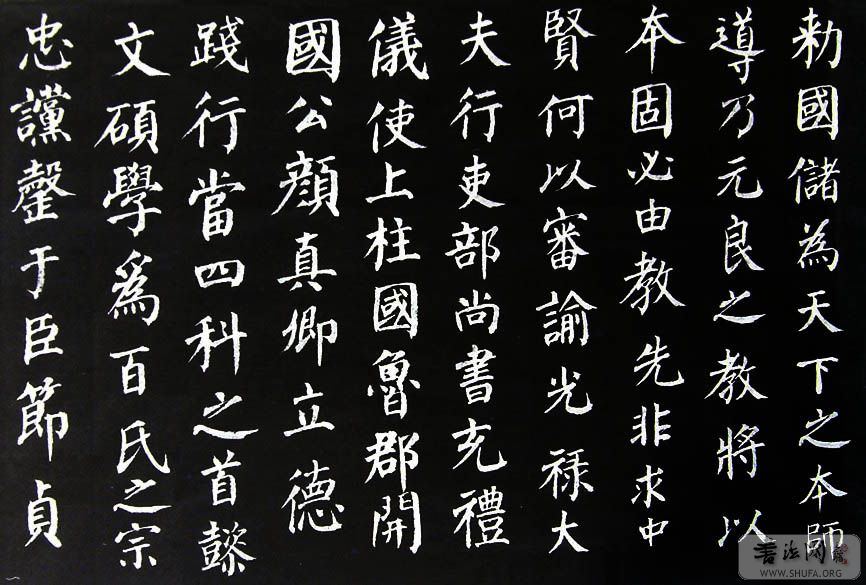 勑國儲為天下之本師
導乃元良之教將以
本固必由教先非求中
賢何以審諭光祿大
夫行吏部尚書充禮
儀使上柱國魯郡開
國公顏真卿立德
踐行當四科之首懿
文碩學爲百氏之宗
忠讜罄于臣節貞
书法网
WWW.SHUFA.ORG